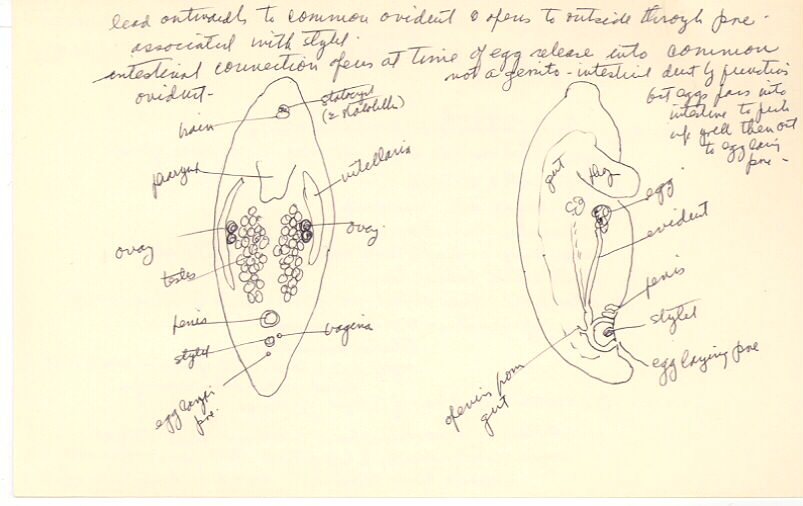 lead outwards to common ovident & opens to outside through pore -
associated with stylet.
intestinal connection opens at time of egg release into common
oviduct -
not a genito-intestinal duct by function
but eggs pass into
intestine to pick
up then out
to egg laying
pore -
statocyst
(2 statoliths)
brain
pharynx
vitellaria
ovary
ovary
testes
penis
stylet
vagina
egg laying
pore.
gut
phag
egg
ovident
penis
stylet
egg laying pore
opening from
gut